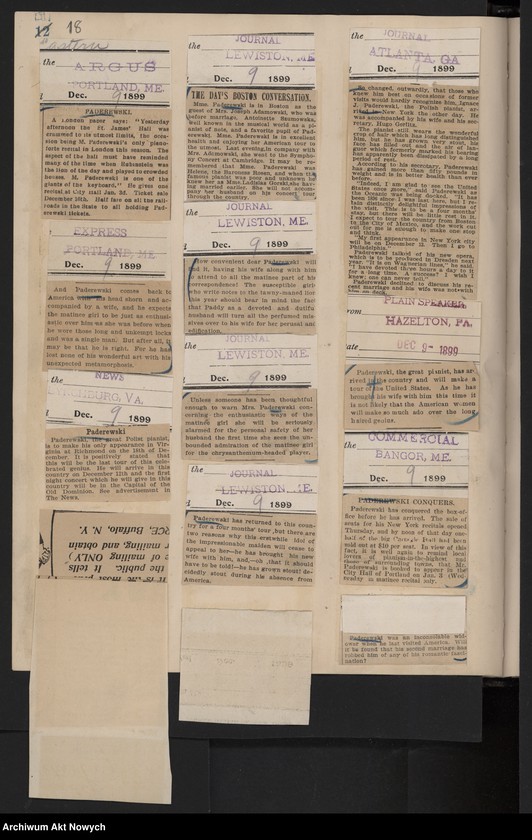 18
Eastern
the
ARGUS
PORTLAND, ME.
Dec. 9 1899
PADEREWSKI
A London paper says: "Yesterday
afternoon the St. James' Hall was
crowned to its utmost limits, the occa-
sion being M. Paderewski's only piano-
forte recital in London this season. The
aspect of the hall must have reminded
many of the time when Rubinstein was
the lion of the day and played to crowded
houses. M. Paderewski is one of the
giants of the keyboard." He gives one
recital at City Hall Jan. 3d. Ticket sale
December 18th. Half fare on all the rail-
roads in the State to all holding Pad-
erewski tickets.
EXPRESS
PORTLAND, ME.
Dec. 9 1899
And Paderewski comes back to
America with his head shorn and ac-
companied by a wife, and he expects
the matinee girl to be just as enthusi-
astic over him as she was before when
he wore those long and unkempt locks
and was a single man. But after all, it
may be that he is right. For he has
lost none of his wonderful art with his
unexpected metamorphosis.
the
NEWS
LYNCHBURG, VA.
Dec. 9 1899
Paderewski
Paderewski, the great Polist pianist,
is to make his only appearance in Vir-
ginia at Richmond on the 18th of De-
cember. It is positively stated that
this will be the last tour of this cele-
brated genius. He will arrive in this
country on December 12th and the first
night concert which he will give in this
country will be in the Capital of the
Old Dominion. See advertisement in
The News.
RCE, Buffalo, N. Y.
r mailing and obtain
or mailing ONLY
the public It tells
the
JOURNAL
LEWISTON, ME.
Dec. 9 1899
THE DAY'S BOSTON CONVERSATION.
Mme. Paderewski is in Boston as the
guest of Mrs. Joseph Adamowski, who was
before marriage, Antoinette Szumowska,
well known in the musical world as a pi-
anist of note, and a favorite pupil of Pad-
erewski. Mme. Paderewski is in excellent
health and enjoying her American tour to
the utmost. Last evening, in company with
Mrs. Adamowski, she went to the Sympho-
ny Concert at Cambridge. It may be re-
membered that Mme. Paderewski was
Helena, the Baroness Rosen, and when the
famous pianist was young and unknown he
knew her as Mme. Ladislas Gorski, she hav-
ing married earlier. She will not accom-
pany her husband on his concert tour
through the country.
the
JOURNAL
LEWISTON, ME.
Dec. 9 1899
How convenient dear Paderewski will
find it, having his wife along with him
to attend to all the matinee part of his
correspondence! The susceptible girl
who writes notes to the tawny-maned lion
this year should bear in mind the fact
that Paddy as a devoted and dutiful
husband will turn all the perfumed mis-
sives over to his wife for her perusal and
edification.
JOURNAL
LEWISTON, ME.
Dec. 9 1899
Unless someone has been thoughtful
enough to warn Mrs. Paderewski con-
cerning the enthusiastic ways of the
matinee girl she will be seriously
alarmed for the personal safety of her
husband the first time she sees the un-
bounded admiration of the matinee girl
for the chrysanthemum-headed player.
the
JOURNAL
LEWISTON, ME.
Dec. 9 1899
Paderewski has returned to this coun-
try for a four months' tour, but there are
two reasons why this erstwhile idol of
the impressionable maiden will cease to
appeal to her—he has brought his new
wife with him, and,—oh, that it should
have to be told!—he has grown stout! de-
cidedly stout during his absence from
America.
the
JOURNAL
ATLANTA, GA
Dec. 9 1899
So changed, outwardly, that those who
knew him best on occasions of former
visits would hardly recognize him, Ignace
J. Paderewski, the Polish pianist, ar-
rived in New York the other day. He
was accompanied by his wife and his sec-
retary, Hugo Gorlitz.
The pianist still wears the wonderful
crop of hair which has long distinguished
him, but he has grown very stout, his
face has filled out and the air of lan-
guor which formerly marked his bearing
has apparently been dissipated by a long
period of rest.
According to his secretary, Paderewski
has gained more than fifty pounds in
weight and is in better health than ever
before.
"Indeed, I am glad to see the United
States once more," said Paderewski as
the Oceanic was being docked. "It has
been 1896 since I was last here, but I re-
tain distinctly delightful impressions of
the visit. This is to be a four months'
stay, but there will be little rest in it.
I expect to tour the country from Boston
to the City of Mexico, and the work cut
out for me is enough to make one stop
and think.
"My first appearance in New York city
will be on December 12. Then I go to
Philadelphia."
Paderewski talked of his new opera,
which is to be produced in Dresden next
year. "It is on Wagnerian lines," he said.
"I have devoted three hours a day to it
for a long time. A success? I wish I
knew; one can never tell."
Paderewski declined to discuss his re-
cent marriage and his wife was not with
him on deck.
PLAIN SPEAKER,
rom
HAZELTON, PA.
ate
DEC 9- 1899
Paderewski, the great pianist, has ar-
rived in the country and will make a
tour of the United States. As he has
brought his wife with him this time it
is not likely that the American women
will make so much ado over the long
haired genius.
the
COMMERCIAL
BANGOR, ME.
Dec. 9 1899
PADEREWSKI CONQUERS.
Paderewski has conquered the box-of-
fice before he has arrived. The sale of
seats for his New York recitals opened
Thursday, and by noon of that day one-
half of the big Carnegie Hall had been
sold out at $10 per seat. In view of this
fact, it is well again to remind local
lovers of pianism-in-the-highest, and
those of surrounding towns, that Mr.
Paderewski is booked to appear in the
City Hall of Portland on Jan. 3 (Wed-
nesday) in matinee recital only.
Paderewski was an inconsolable wid-
ower when he last visited America. Will
it be found that his second marriage has
robbed him of any of his romantic fasci-
nation?
Archiwum Akt Nowych